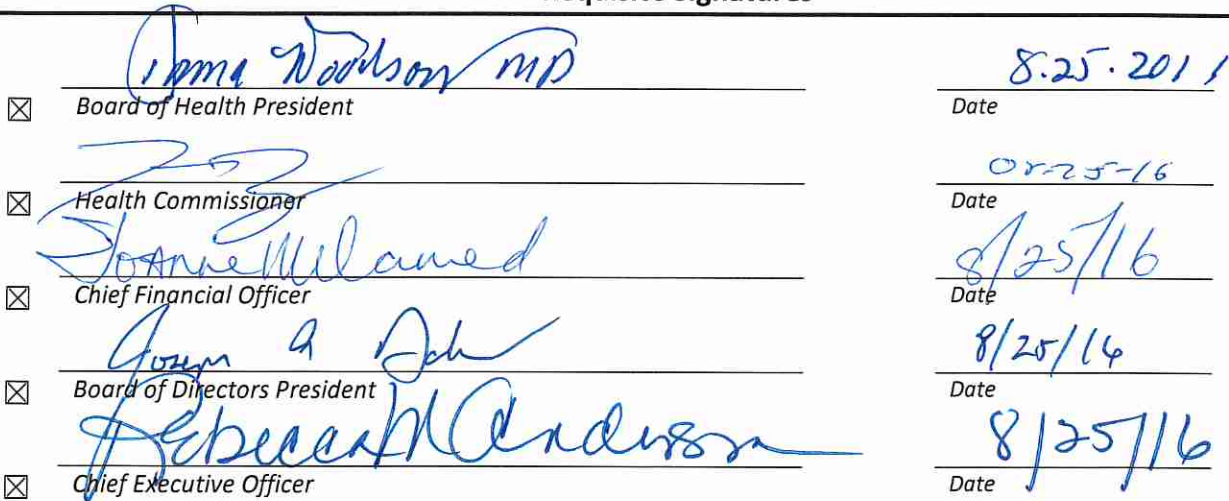 Woodson MD 8.25.2011
☒ Board of Health President Date
08-25-16
☒ Health Commissioner Date
JoAnne Melamed 8/25/16
☒ Chief Financial Officer Date
Joseph A 8/25/16
☒ Board of Directors President Date
Rebecca M Anderson 8/25/16
☒ Chief Executive Officer Date